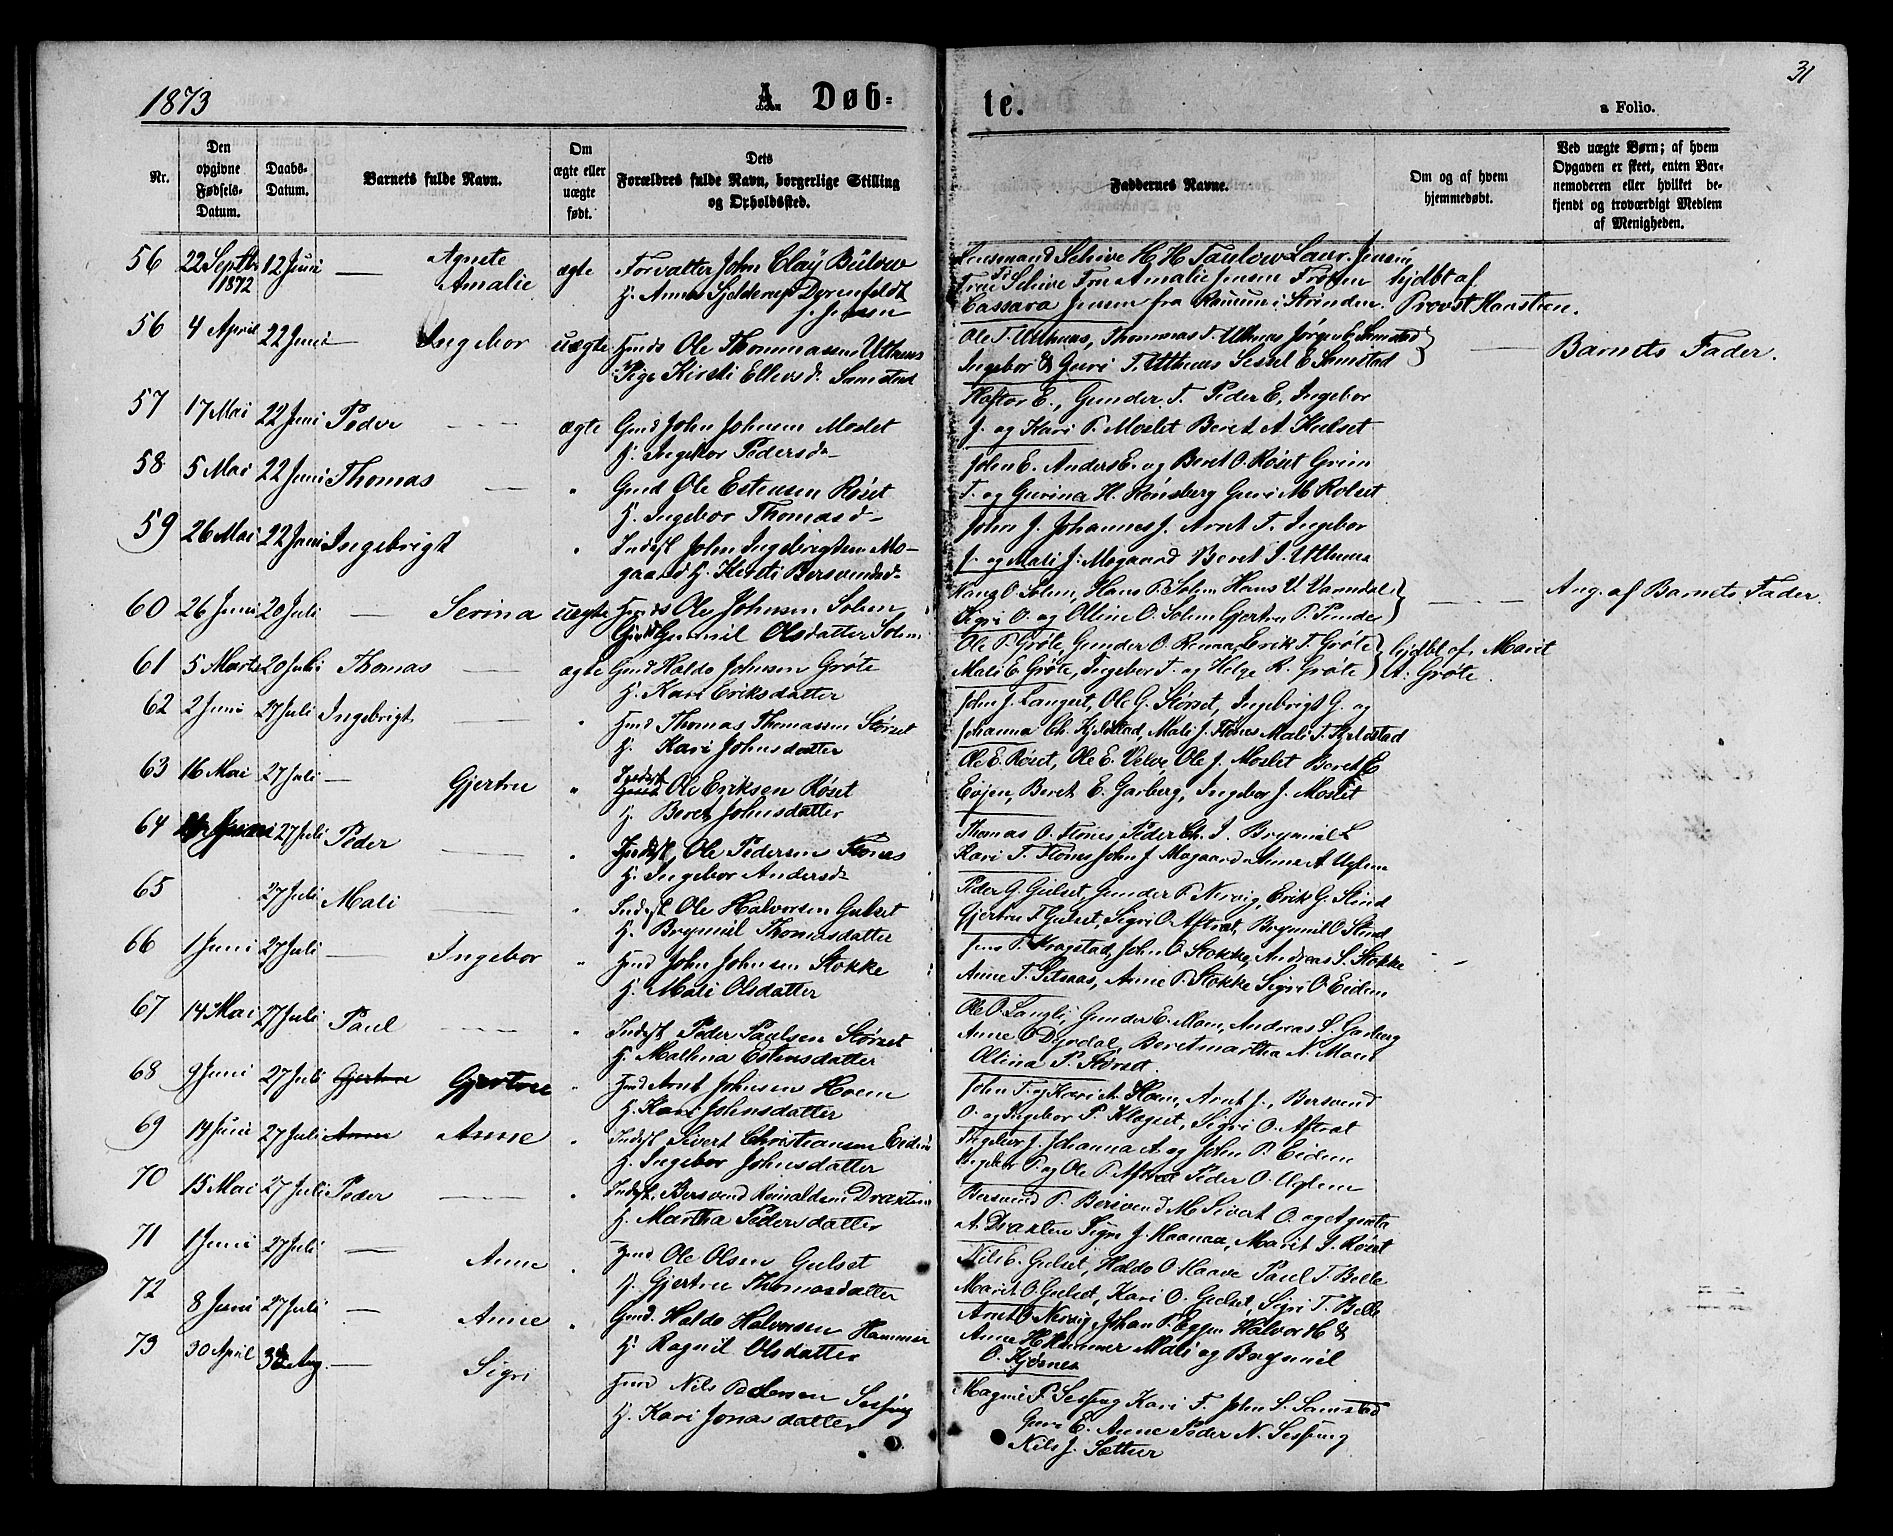 31
1873
A. Døb-
te.
a Folio.
Nr.
Den opgivne Fødsels-Datum.
Daabs-Datum.
Barnets fulde Navn.
Om ægte eller uægte født.
Dets Forældres fulde Navn, borgerlige Stilling og Opholdssted.
Faddernes Navne.
Om og af hvem hjemmedøbt.
Ved uægte Børn; af hvem Opgaven er skeet, enten Barnemoderen eller hvilket bekjendt og troværdigt Medlem af Menigheden.
56 22 Septbr 1872 12 Juni — Agnete Amalie ægte Forvalter John Clay Bülow
H. Anna Dorenfeldt f. Jensen
Lensmand Schive H. H. Taulow Laur. Jensen
Frue Schive Fru Amalie Jensen Frøken
Cassara Jensen fra i Strinden.
hjdbt af
Provst Hansteen.
56 4 April 22 Juni — Ingebor uægte Ole Thommassen Uthuus
Pige Kirsti Ellevsd. Samstad
Ole T. Uthuus, Thommas T. Uthuus Jørgen E. Samstad
Ingebor & Guri T. Uthuus Sissel E. Samstad
— Barnets Fader.
57 17 Mai 22 Juni Peder — ægte Gmd John Johnsen Moslet
H. Ingebor Pedersd.
Haftor E., Gunder T. Peder E. Ingebor
J. og Kari P. Moslet Beret A. Hulset
58 5 Mai 22 Juni Thomas — " Gmd Ole Estensen Røset
H. Ingebor Thomasd.
John E. Anders E. og Beret O. Røset
T. og Gurina H. Rønsberg Guri M. Rolset
59 26 Mai 22 Juni Ingebrigt " Indst John Ingebrigtsen Mo-
gaard H. Kirsti Bersvendsd.
John J. Johannes J. Arnt T. Ingebor
J. og Mali J. Mogaard Beret J. Uthuus
60 26 Juni 20 Juli — Serina uægte Ole Johnsen Solem
Gunnil Olsdatter Solem
O. Solem, Hans P. Solem Hans U. Vamdal
Sigri O. og Oline O. Solem Gjertru P.
— Ang. af Barnets Fader.
61 5 Marts 20 Juli Thomas — ægte Gmd Haldo Johnsen Grøte
H. Kari Eriksdatter
Ole P. Grøte, Gunder O. Erik T. Grøte
Mali E. Grøte, Ingebor T. og Helge R. Grøte
hjdbt af Marit
A. Grøte.
62 2 Juni 27 Juli Ingebrigt — " Hmd Thomas Thomassen Størset
H. Kari Johnsdatter
John J. Langset, Ole G. Størset, Ingebrigt G. og
Johanna Ch. Kjelstad, Mali J. Flønes Mali T. Kjelstad
63 16 Mai 27 Juli — Gjertru " Indst Ole Eriksen Røset
H. Beret Johnsdatter
Ole E. Røset, Ole E. Velve Ole J. Moslet Beret E
Evjen, Beret E. Garberg, Ingebor J. Moslet
64 Juni 27 Juli Peder — " Indst. Ole Pedersen Flønes
H. Ingebor Andersd.
Thomas O. Flønes Peder Ch. J. Brynnil L
Kari T. Flønes John J. Mogaard Anne A Uglem
65 27 Juli Mali — " Indst Ole Halvorsen Gulset
H. Brynnil Thomasdatter
Peder G. Gulset, Gunder P. Nervig, Erik G. Slind
Gjertru T. Gulset, Sigri O. Aftret, Brynnil O Slind
66 1 Juni 27 Juli — Ingebor " Hmd John Johnsen Stokke
H. Mali Olsdatter
Jens P. Kragstad, John O Stokke, Andreas S. Stokke
Anne T. Anne P. Stokke Sigri O Eidem
67 14 Mai 27 Juli Paul — " Indst Peder Paulsen Størset
H. Mallena Estensdatter
Ole O. Langli, Gunder E. Moen, Andreas S. Garberg
Anne O Dyrdal, Beretmartha N. Moen
Olina P. Størset.
68 9 Juni 27 Juli Gjertru Gjertru " Hmd Arnt Johnsen Hoem
H. Kari Johnsdatter
John T. og Kari A. Hoem, Arnt J., Bersvend
O. og Ingebor P. Klegset, Sigri O. Aftret
69 14 Juni 27 Juli Anne Anne " Indst Sivert Christiansen Eidem
H. Ingebor Johnsdatter
Ingebor J. Johanna A og John P. Eidem
Ingebor P. og Ole P. Aftret Peder O. Uglem
70 15 Mai 27 Juli Peder — " Indst. Bersvend Reinaldsen Draxten
H. Martha Pedersdatter
Bersvend P. Bersvend M Sivert O. og Agneta
A. Draxten Sigri J. Haanaa, Marit S. Røset
71 1 Juni 27 Juli — Anne " Hmd Ole Olsen Gulset
H. Gjertru Thomasdatter
Nils E. Gulset, Haldo O Haave Paul T. Bolle
Marit O Gulset, Kari O. Gulset, Sigri T. Bolle
72 8 Juni 27 Juli — Anne " Gmd. Haldo Halvorsen Hammer
H. Ragnil Olsdatter
Arnt O Nervig Johan P. Eggen Halvor H &
Anne H Hammer Mali og Brynnil
O. Kjøsnes
73 30 April 3 Aug. — Sigri Hmd Nils Pedersen Sesseng
H. Kari Jonasdatter
Magne P. Sesseng Kari F. John S. Samstad
Guri E. Anne Peder N. Sesseng
Nils J. Sætter